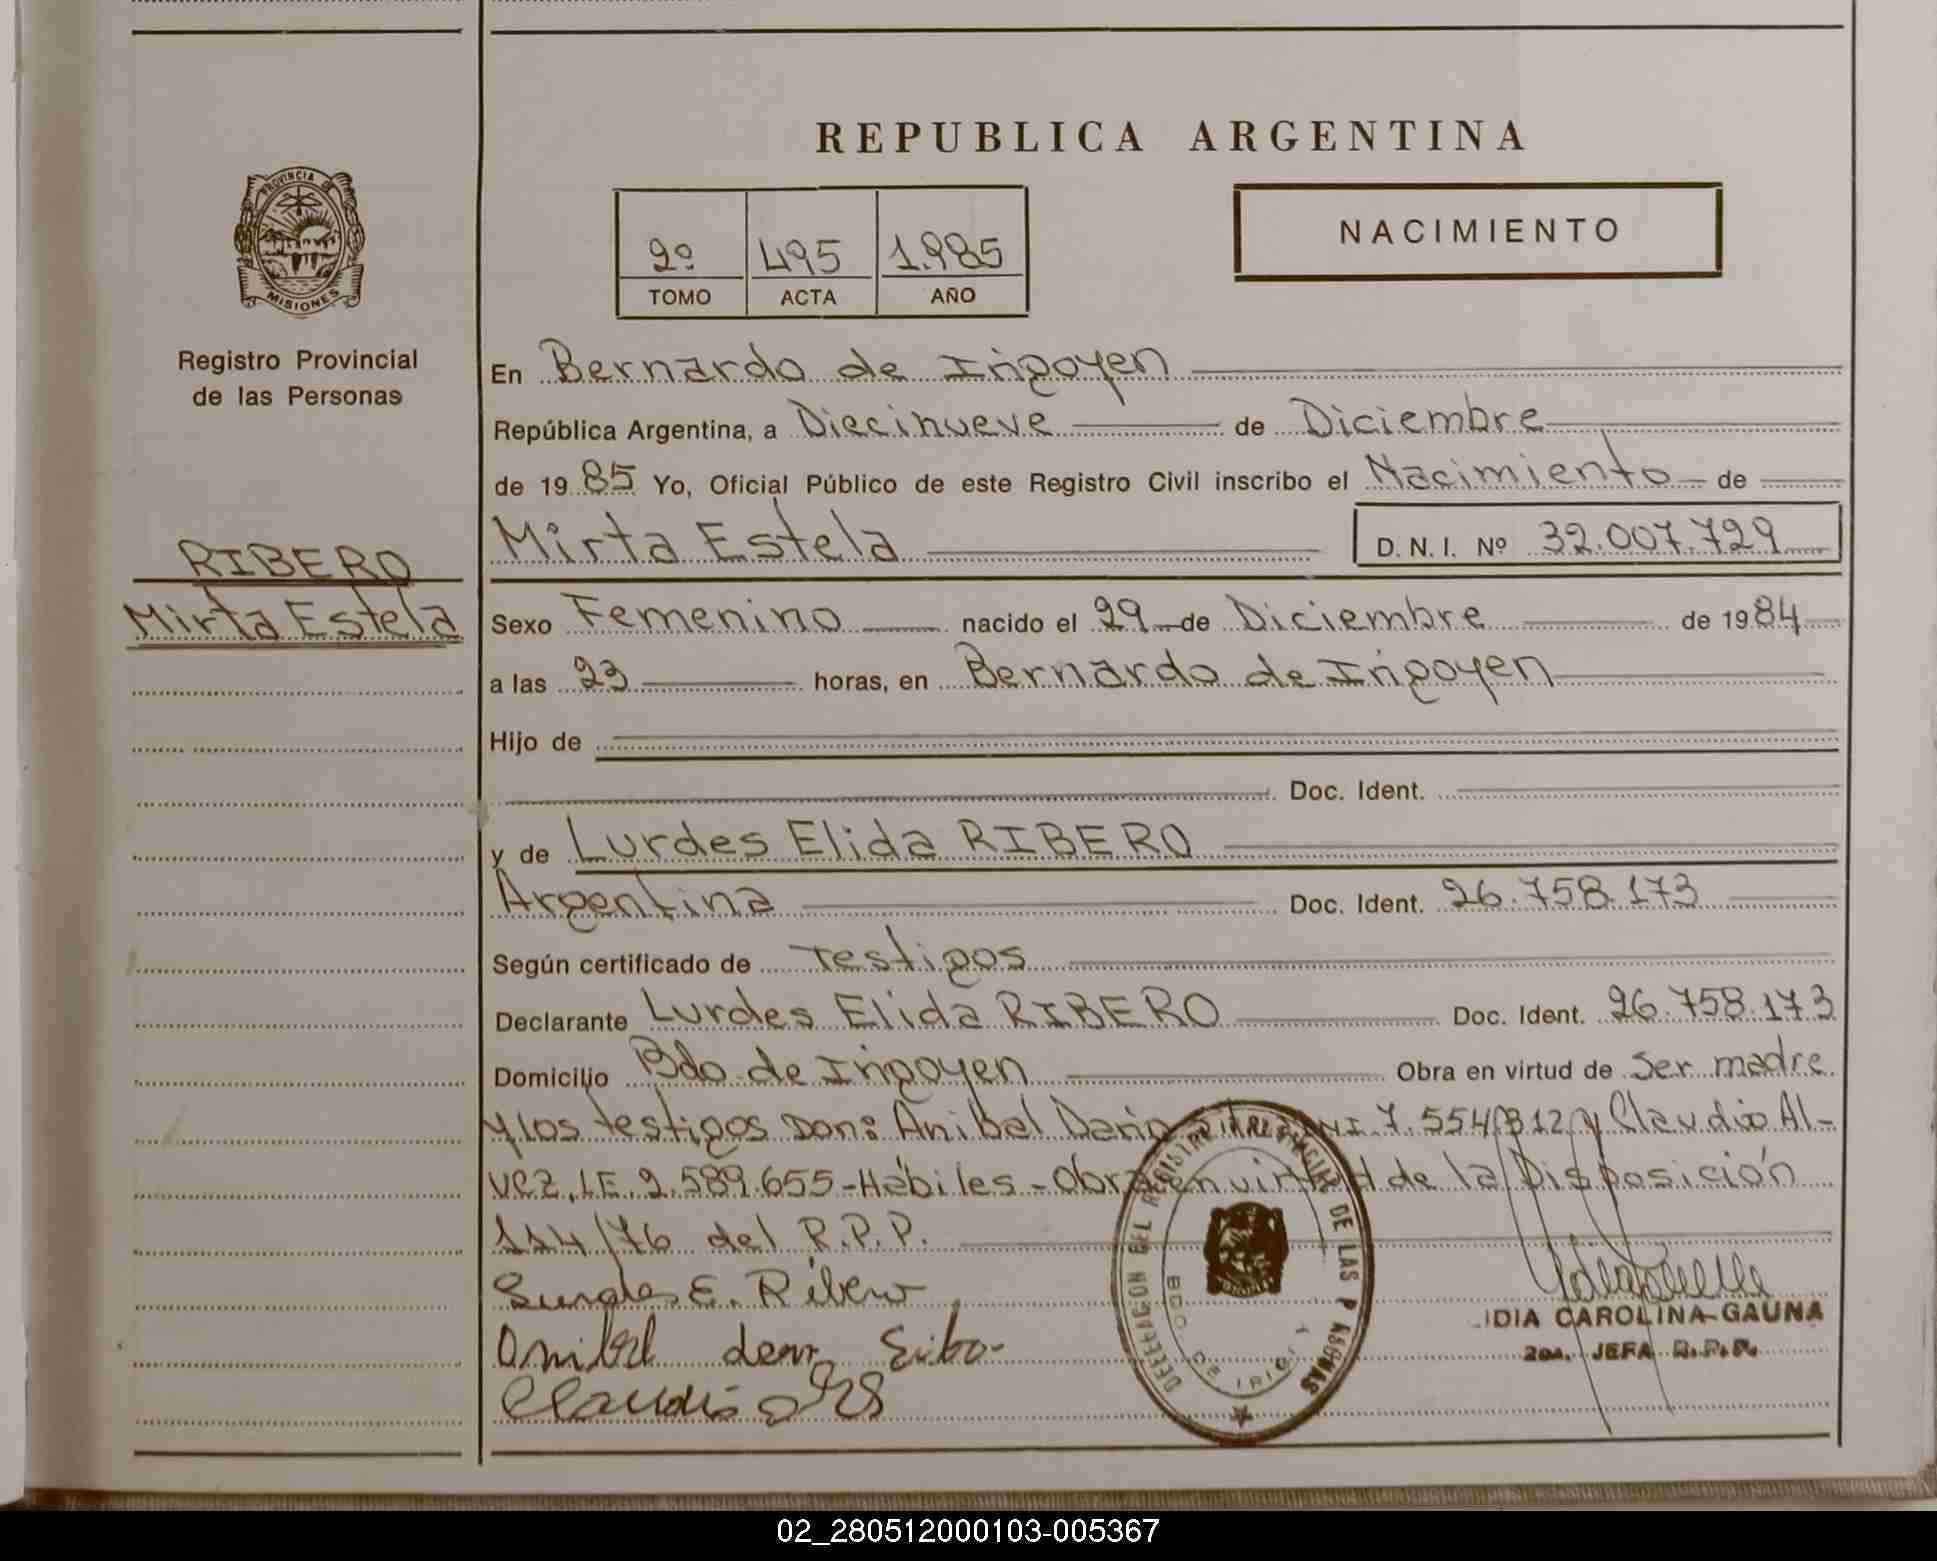 REPUBLICA ARGENTINA
PROVINCIA DE
MISIONES
Registro Provincial
de las Personas
RIBERO
Mirta Estela
2º 495 1.985
TOMO ACTA AÑO
NACIMIENTO
En Bernardo de Irigoyen
República Argentina, a Diecinueve de Diciembre
de 1985 Yo, Oficial Público de este Registro Civil inscribo el Nacimiento de
Mirta Estela D.N.I. Nº 32.007.729
Sexo Femenino nacido el 29 de Diciembre de 1984
a las 23 horas, en Bernardo de Irigoyen
Hijo de
Doc. Ident.
y de Lurdes Elida RIBERO
Argentina Doc. Ident. 26.758.173
Según certificado de Testigos
Declarante Lurdes Elida RIBERO Doc. Ident. 26.758.173
Domicilio Bdo de Irigoyen Obra en virtud de ser madre
y los testigos son: Anibal Dario 7.554.312 y Claudio Al-
vez, LE. 2.589.655-Hábiles-Obra en virtud de la Disposición
114/76 del R.P.P.
Lurdes E. Ribero
Claudio
DE LAS
BDO. DE
IDIA CAROLINA GAUNA
2da. JEFA R.P.P.
02_280512000103-005367